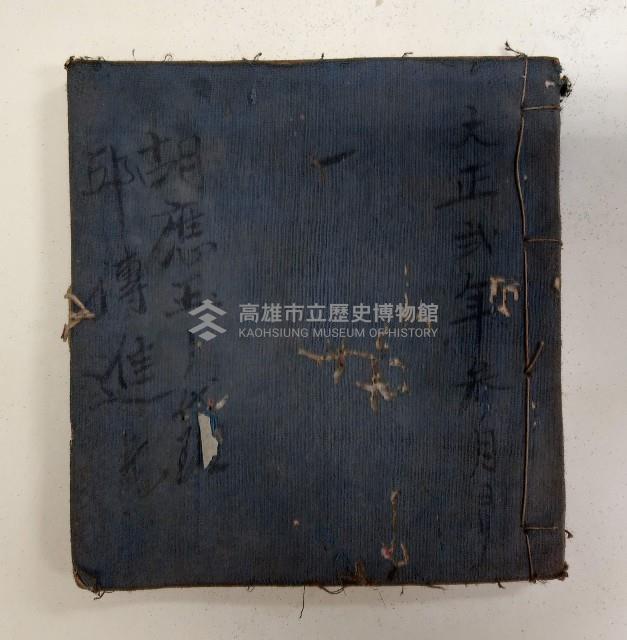 文正弍年叁月日
一
胡應玉
邱傳進
高雄市立歷史博物館
KAOHSIUNG MUSEUM OF HISTORY